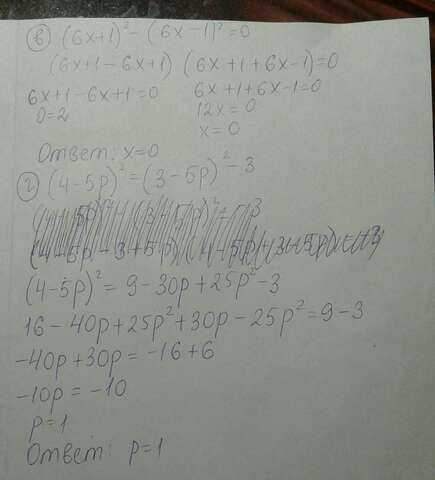 в) (6x+1)² - (6x-1)² = 0
(6x+1-6x+1) (6x+1+6x-1)=0
6x+1-6x+1=0 6x+1+6x-1=0
0=2 12x=0
x=0
Ответ: x=0
г) (4-5p)² = (3-5p)² - 3
(4-5p)² = 9-30p+25p²-3
16-40p+25p²+30p-25p²=9-3
-40p+30p=-16+6
-10p=-10
p=1
Ответ: p=1